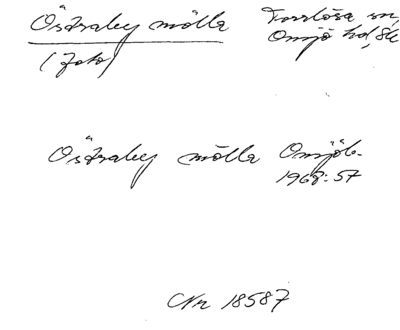 Östraby mölla
Torrlösa sn,
Onsjö hd, Sk
(foto)
Östraby mölla Onsjöb.
1968:57
Nr 18587